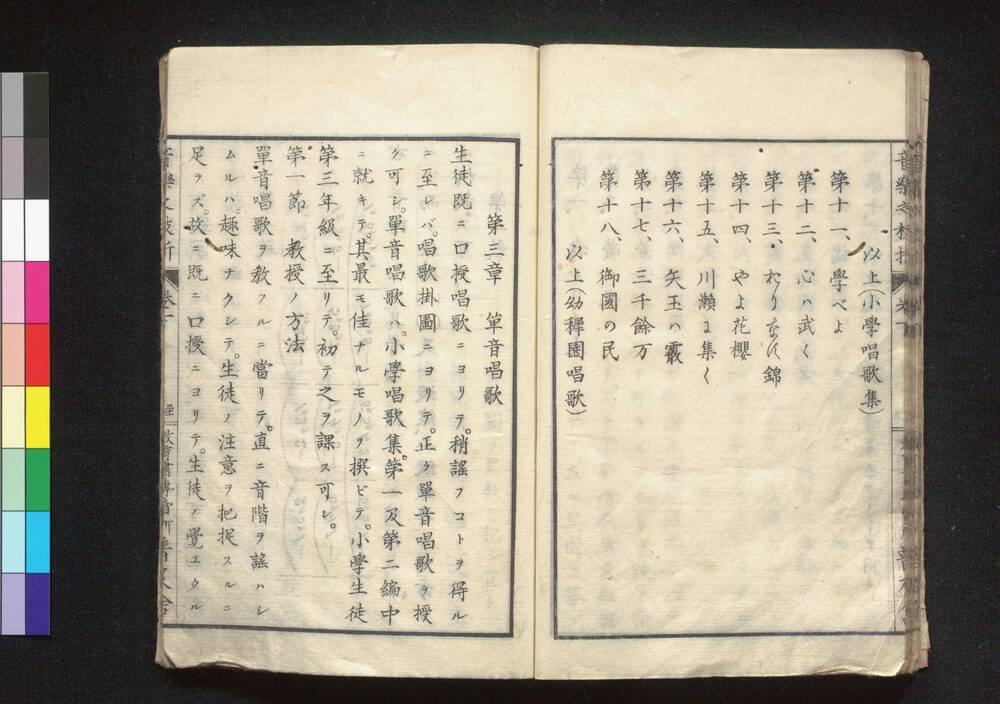 以上小學唱歌集)
第十一、 學べよ
第十二、 心ハ武く
第十三、 おりなす錦
第十四、 やよ花櫻
第十五、 川瀬に集く
第十六、 矢玉ハ霰
第十七、 三千餘万
第十八、 御國の民
以上(幼穉園唱歌)
第三章 單音唱歌
生徒既ニ口授唱歌ニヨリテ。稍謡フコトヲ得ル
ニ至レバ。唱歌掛圖ニヨリテ。正ク單音唱歌ヲ授
ク可シ。單音唱歌ハ。小學唱歌集。第一及第二編中
ニ就キテ。其最モ佳ナルモノヲ撰ビテ。小學生徒
第三年級ニ至リテ。初テ之ヲ課ス可シ。
第一節 教授ノ方法
單音唱歌ヲ教フルニ當リテ。直ニ音階ヲ謡ハシ
ムルハ。趣味ナクシテ。生徒ノ注意ヲ把捉スルニ
足ラズ。故ニ既ニ口授ニヨリテ。生徒ノ覺エタル